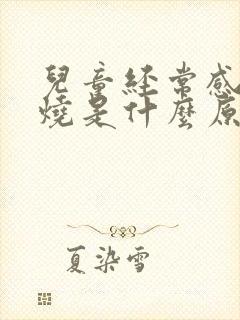 兒童經常感
燒是什麼原
夏染雪